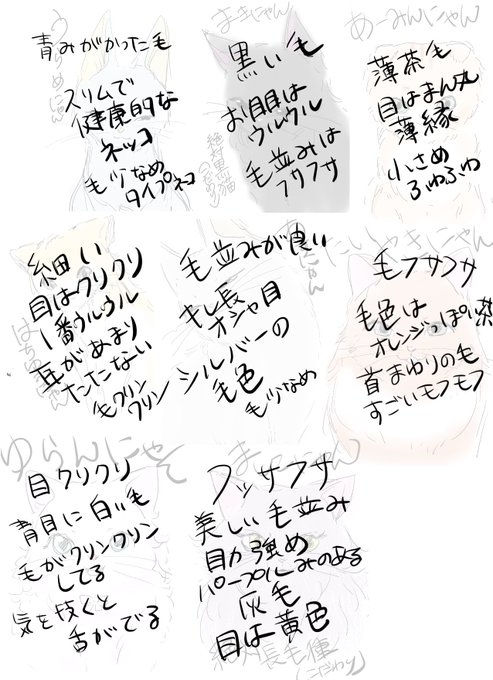 うらめにゃん
青みがかった毛
スリムで
健康的な
ネッコ
毛ツなめ
タイプネコ
まきにゃん
黒い毛
お目目は
ウルウル
毛並みは
フサフサ
絶対黒猫
あーみんにゃん
薄茶毛
目はまん丸
薄縁
小さめ
ふわふわ
細い
目はクリクリ
1番ウルウル
耳があまり
たたない
毛クリン
クリン
毛並みが良い
キレ長
オシャ目
シルバーの
毛色
毛ツなめ
たいやきにゃん
毛フサフサ
毛色は
オレンジっぽい茶
首まわりの毛
すごいモフモフ
ゆらんにゃん
目クリクリ
青目に白い毛
毛がクリンクリン
してる
気を抜くと
舌がでる
フッサフサ
美しい毛並み
目力強め
パープルみのある
灰毛
目は黄色
長毛種
(こだわり)